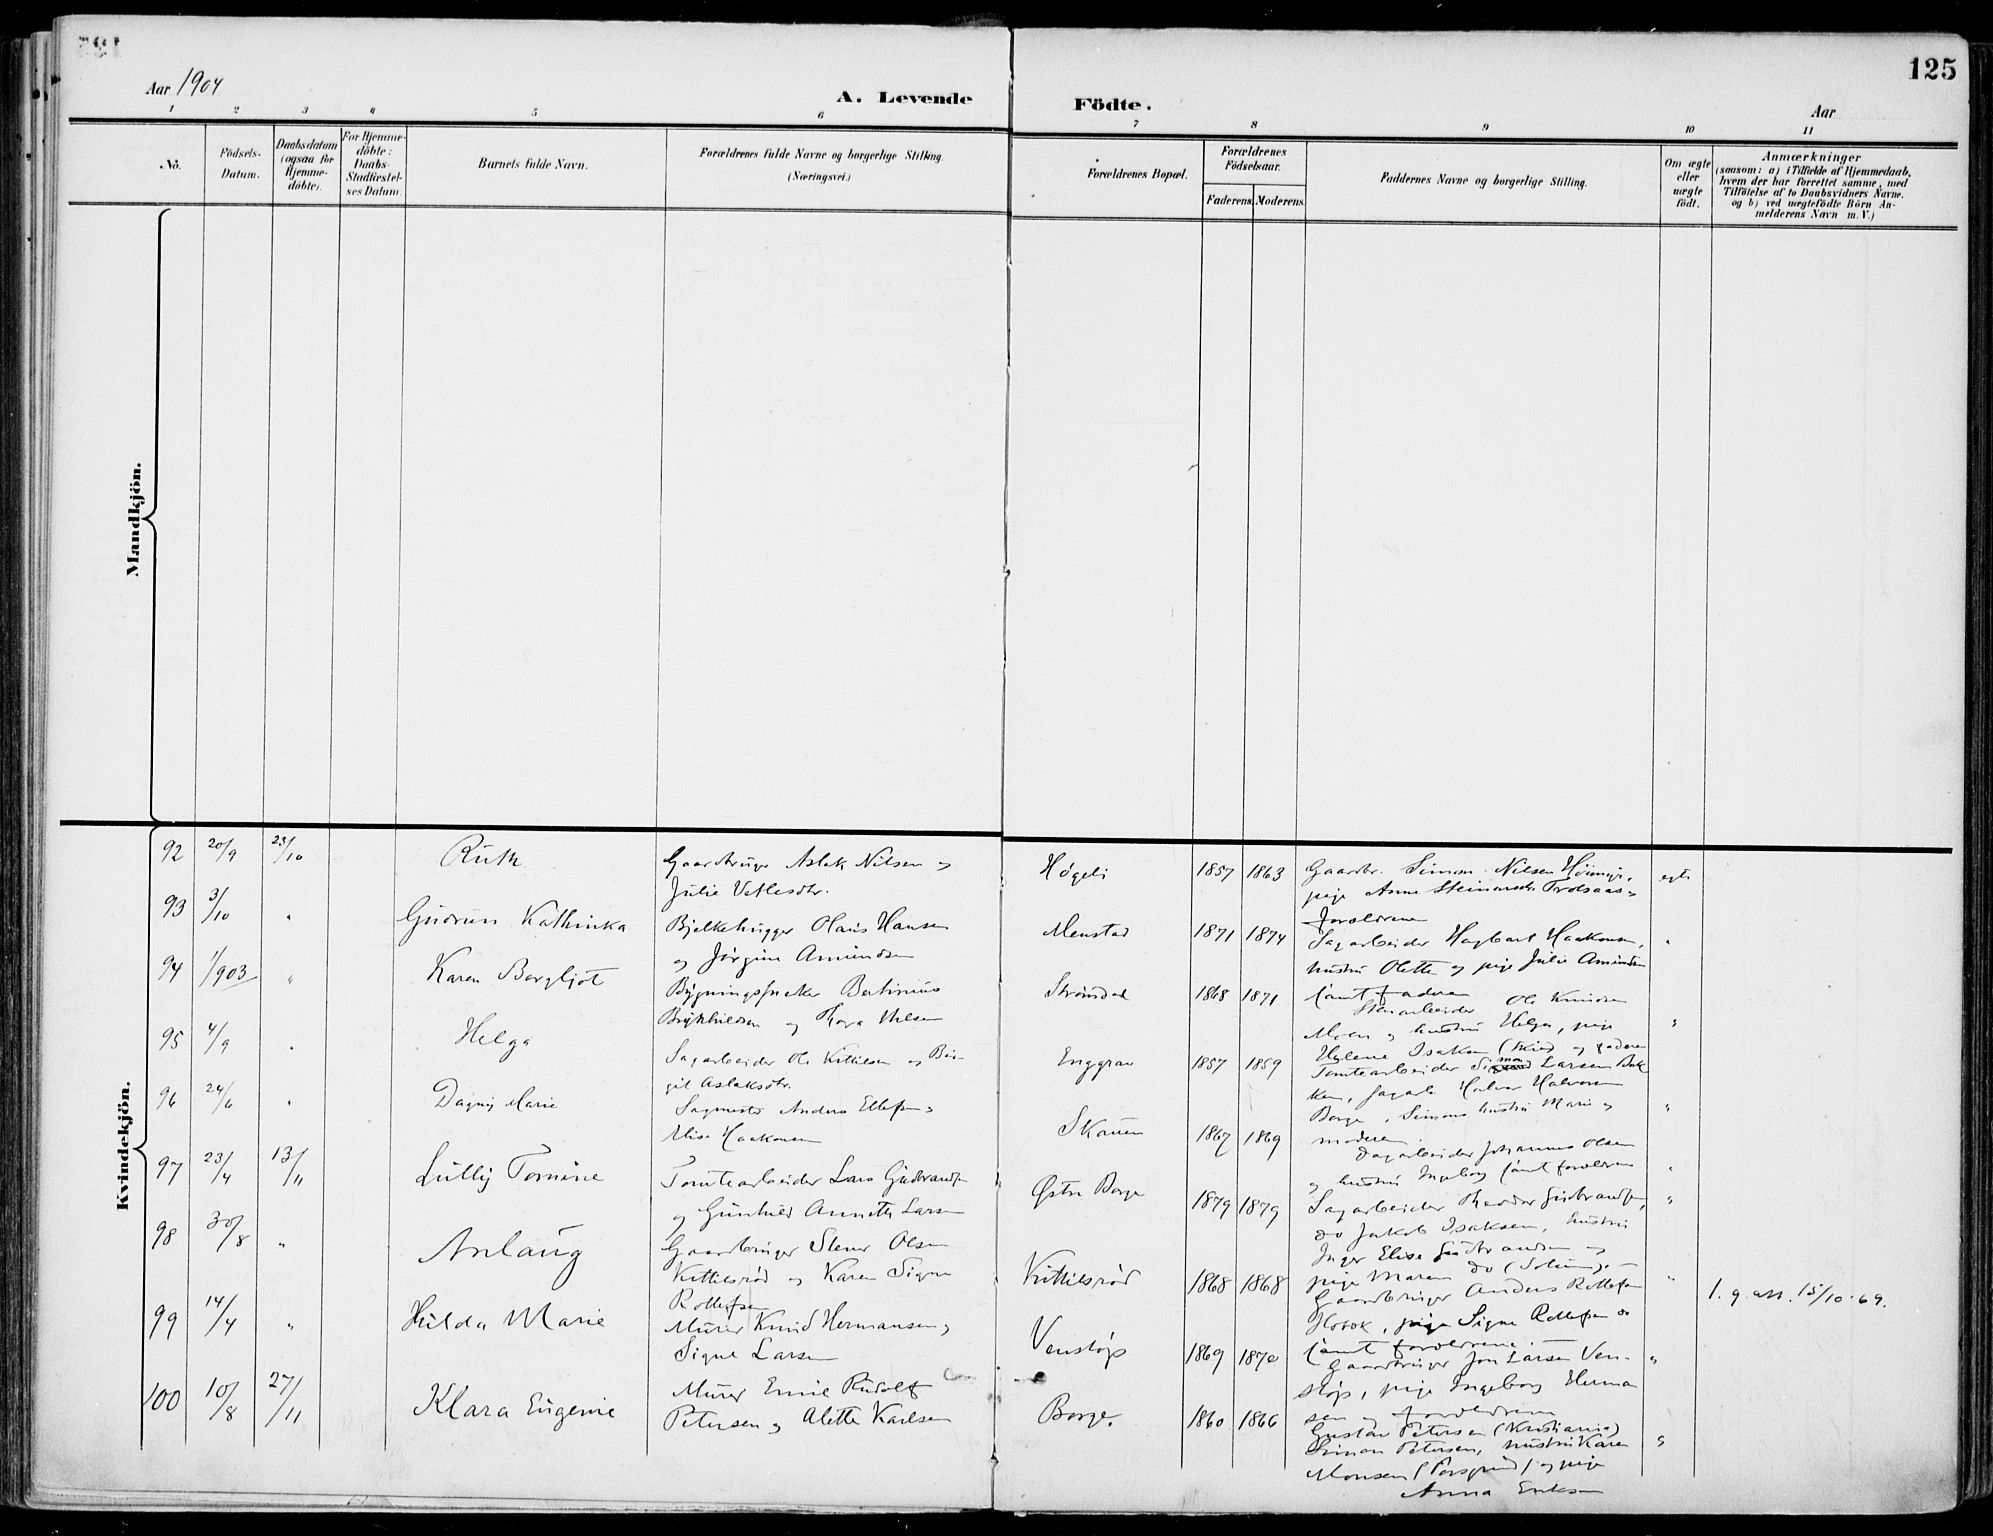 125
Aar 1904
A. Levende Födte.
Aar
1 2 3 4 5 6 7 8 9 10 11
No.
Födsels-Datum.
Daabsdatum (ogsaa for Hjemme-döbte).
For Hjemme-döbte: Daabs-Stadfæstel-ses Datum.
Barnets fulde Navn.
Forældrenes fulde Navne og borgerlige Stilling.
(Næringsvei.)
Forældrenes Bopæl.
Forældrenes Födselsaar.
Faderens. Moderens.
Faddernes Navne og borgerlige Stilling.
Om ægte eller uægte födt.
Anmærkninger
(saasom: a) i Tilfælde af Hjemmedaab,
hvem der har forrettet samme, med
Tilföielse af to Daabsvidners Navne.
og b) ved uægtefödte Börn An-
melderens Navn m. V.)
Mandkjön.
Kvindekjön.
92 20/9 23/10 Ruth
Gaardbruger Aslak Nilsen og
Julie Vetlesdtr.
Høgeli 1857 1863
Gaardbr. Simon Nilsen
pige Anne
Forældrene
egte
93 3/10 " Gudrun Kathinka
Bjelkehugger Olaus Hansen
og Jørgine Amundsen
Menstad 1871 1874
Sagarbeider Hagbart Haakonsen,
hustru Olette og pige Julie Amundsen
samt faderen
"
94 1/903 " Karen Bergljot
Bygningssnekker
og Thora Nilsen
1868 1871
Stenarbeider Ole Knudsen
Moen og hustru Helga, pige
Helene Isaksen (Skien) og faderen
"
95 4/9 " Helga
Sagarbeider Ole Kittilsen og Bir-
git Aslaksdtr.
Enggrav 1857 1859
Tomtearbeider Simon Larsen Bak
ken, Sagarb. Halvor Halvorsen
Borge, Simons hustru Marie og
moderen.
"
96 24/6 " Dagny Marie
Sagmester Anders Ellefsen og
Elise Haakonsen
Skauen 1867 1869
Dagarbeider Johannes Olsen
og hustru Ingeborg samt forældrene
"
97 23/4 13/11 Lully Tomine
Tomtearbeider Lars Gudbrandsen
og Gunhild Annette Larsen
Østre Borge 1879 1879
Sagarbeider Theodor Gudbrandsen,
do Jakob Isaksen, hustru
Inger Elise Gudbrandsen og
pige Maren do (Solum).
"
98 30/8 " Anlaug
Gaardbruger Stener Olsen
Kittilsrød og Karen Signe
Rollefsen
Kittilsrød 1868 1868
Gaardbruger Anders Rollefsen
pige Signe Rollefsen og
samt forældrene.
"
1. g. att. 15/10-69.
99 14/4 " Hilda Marie
Murer Knud Hermansen og
Signe Larsen
Venstøp 1869 1870
Gaardbruger Jon Larsen Ven-
støp, pige Ingeborg Herman
sen og forældrene
"
100 10/8 27/11 Klara Eugenie
Murer Emil Rudolf
Petersen og Alette Karlsen
Borge. 1860 1866
Gustav Petersen (Kristiania)
Simon Petersen, hustru Karen
Monsen (Porsgrund) og pige
Anna Eriksen
"